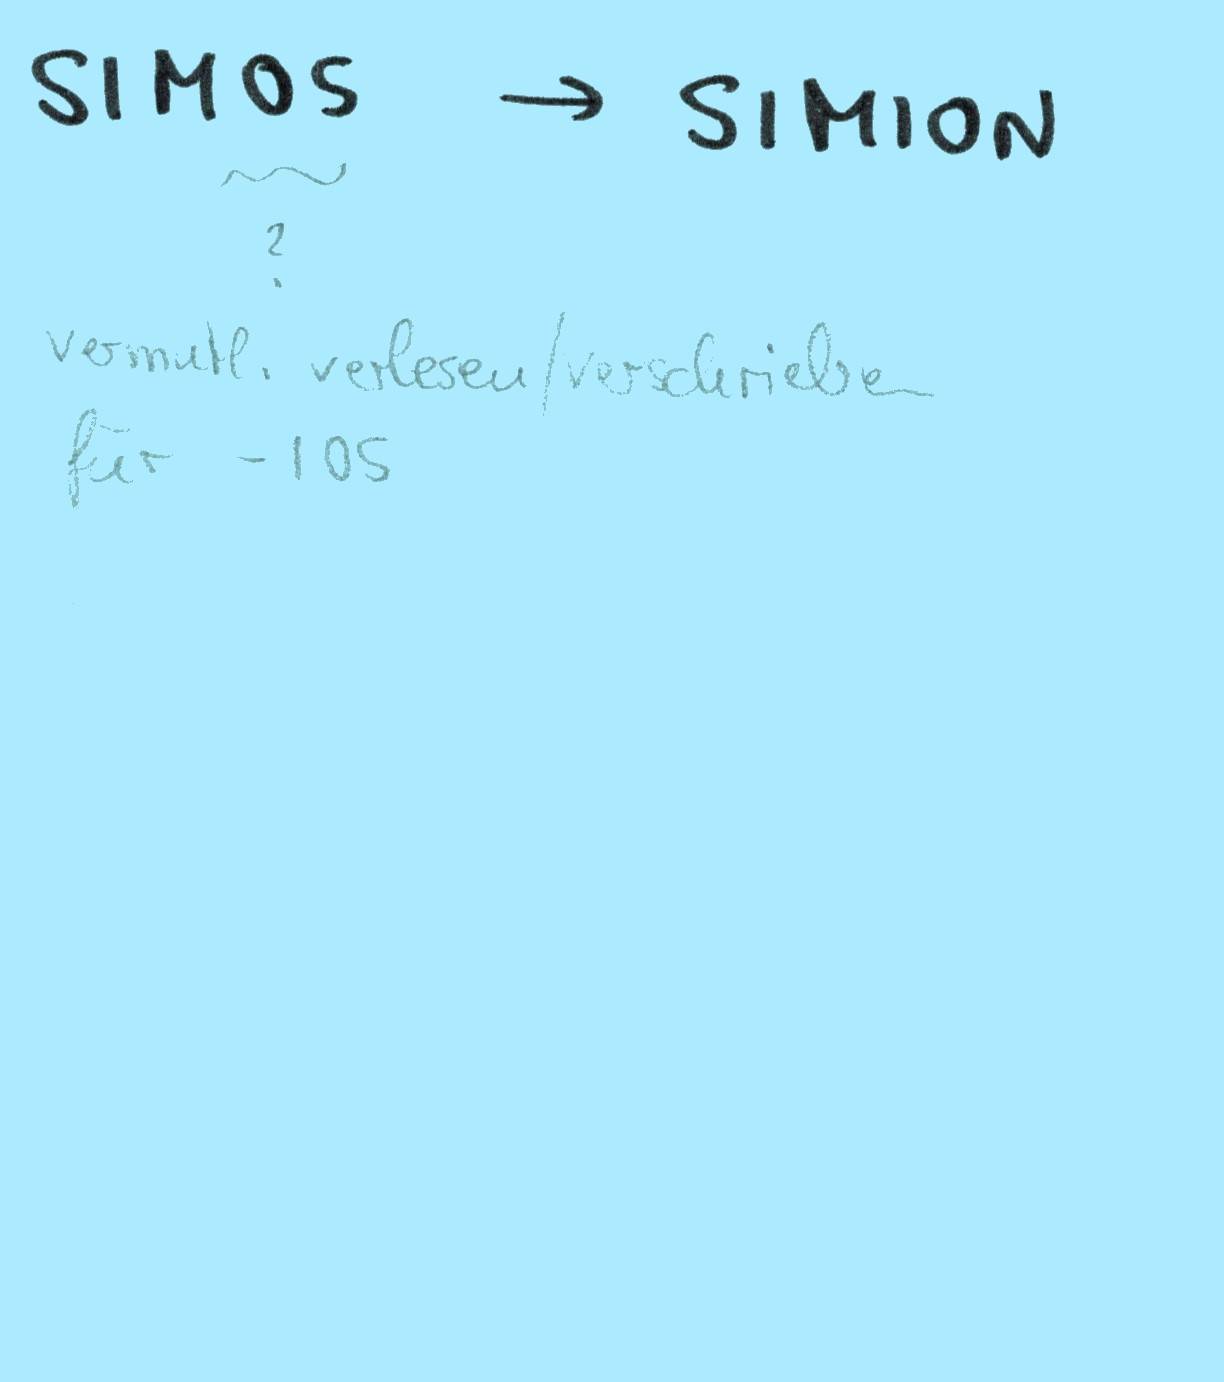 SIMOS → SIMION
?
vermutl. verlesen/verschrieben
für -IOS